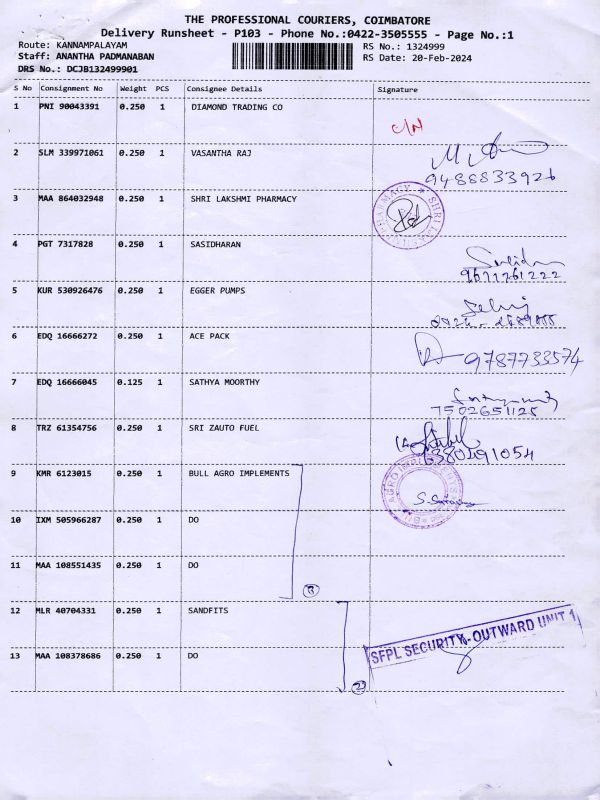 THE PROFESSIONAL COURIERS, COIMBATORE
Delivery Runsheet - P103 - Phone No.:0422-3505555 - Page No.:1
Route: KANNAMPALAYAM RS No.: 1324999
Staff: ANANTHA PADMANABAN RS Date: 20-Feb-2024
DRS No.: DCJB132499901
S No Consignment No Weight PCS Consignee Details Signature
1 PNI 90043391 0.250 1 DIAMOND TRADING CO
C/N
2 SLM 339971061 0.250 1 VASANTHA RAJ
9486833926
3 MAA 864032948 0.250 1 SHRI LAKSHMI PHARMACY
4 PGT 7317828 0.250 1 SASIDHARAN
9677261222
5 KUR 530926476 0.250 1 EGGER PUMPS
6 EDQ 16666272 0.250 1 ACE PACK
9787733574
7 EDQ 16666045 0.125 1 SATHYA MOORTHY
7502651125
8 TRZ 61354756 0.250 1 SRI ZAUTO FUEL
6380491054
9 KMR 6123015 0.250 1 BULL AGRO IMPLEMENTS
AGRO IMPLEMENTS
10 IXM 505966287 0.250 1 DO
11 MAA 108551435 0.250 1 DO
3
12 MLR 40704331 0.250 1 SANDFITS
SFPL SECURITY-OUTWARD UNIT 1
13 MAA 108378686 0.250 1 DO
2